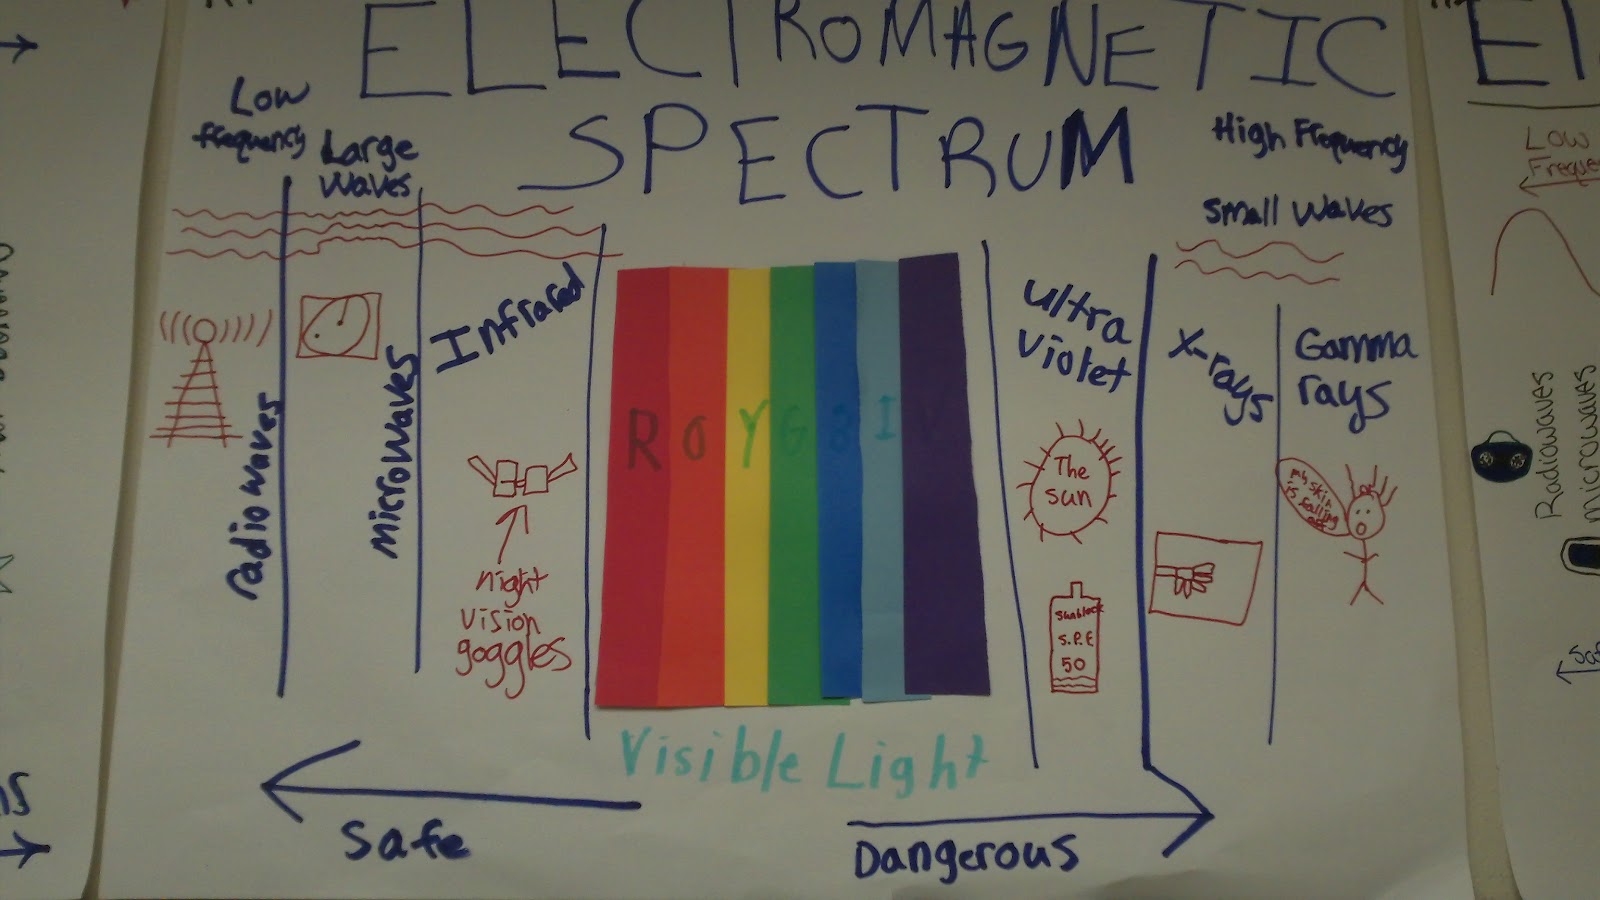 ELECTROMAGNETIC
SPECTRUM
Low
frequency
Large
Waves
High Frequency
Small Waves
radio waves
Microwaves
Infrared
night
vision
goggles
R O Y G B I V
Visible Light
ultra
violet
The
sun
Sunblock
S.P.F
50
X-rays
Gamma
rays
my skin
is falling
off
Safe
Dangerous
Low
Radiowaves
microwaves